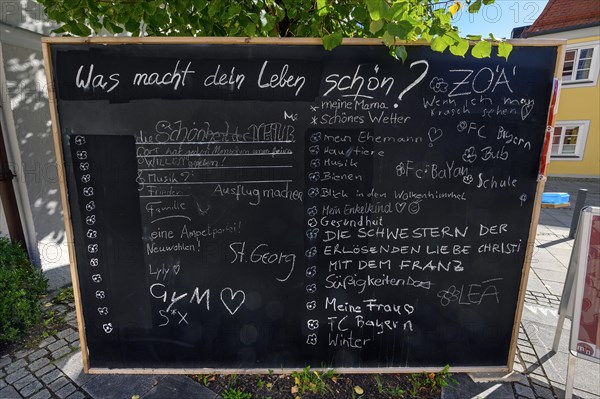 Was macht dein Leben schön?
die Schönheit der Natur
WILLEN
Musik?
Frieden
Ausflug machen
Familie
eine Ampelpartei!
Neuwahlen!
Lyly
St. Georg
GYM
meine Mama
Schönes Wetter
mein Ehemann
Haustiere
Musik
Bienen
Blick in den Wolkenhimmel
Mein Enkelkind
Gesundheit
DIE SCHWESTERN DER
ERLÖSENDEN LIEBE CHRISTI
MIT DEM FRANZ
Süßigkeiten
Meine Frau
FC Bayern
Winter
ZOÄ
Wenn ich
FC Bayern
Bub
FC BaYan
Schule
LEA